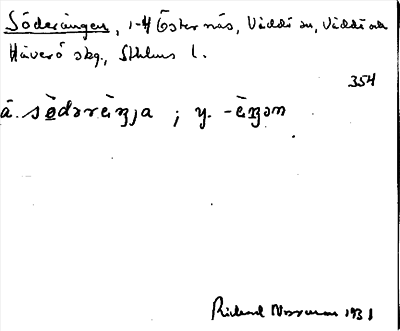 Söderängen, 1-4 Östernäs, Väddö sn, Väddö och
Häverö skg., Sthlms l.
354
ä. sö̀dərèŋja ; y. -èŋən
Rickard Norrman 1931